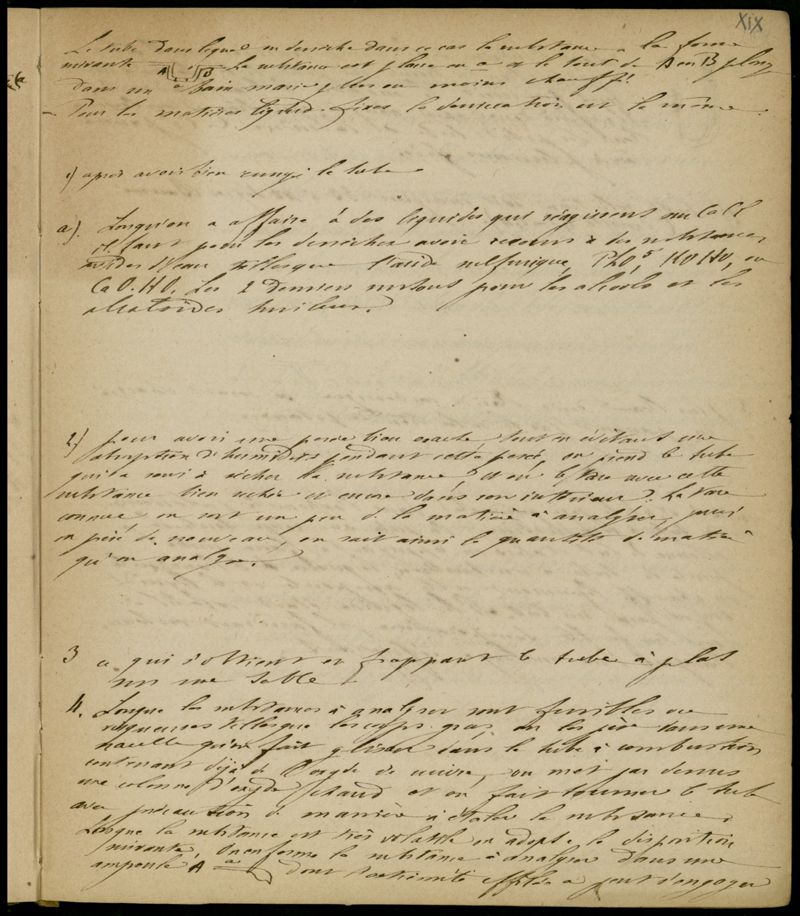 XIX
Le tube dans lequel on dessèche dans ce cas la substance a la forme
suivante A B La substance est placée en a et le tout de A en B plonge
dans un bain marie plus ou moins chauffé.
— Pour les matières liquides fixes la dessication est la même.
1) après avoir bien rangé le tube.
a). Lorsqu'on a affaire à des liquides qui réagissent sur CaCl
il faut pour les dessécher avoir recours à des substances
avides d'eau telles que l'acide sulfurique, PhO⁵, KOHO, ou
CaO.HO. Les 2 derniers surtout pour les alcools et les
alcaloïdes huileux.
2) pour avoir une pesée bien exacte tout en évitant une
absorption d'humidité pendant cette pesée, on prend le tube
qui a servi à sécher la substance, et on le tare avec cette
substance bien sèche et encore dans son intérieur. La tare
connue on sort un peu de la matière à analyser, puis
on pèse de nouveau, on sait ainsi la quantité de matière
qu'on analyse.
3 ce qui s'obtient en frappant le tube à plat
sur une table.
4. Lorsque les substances à analyser sont fusibles ou
telles que les corps gras, on les pèse dans une
nacelle qu'on fait glisser dans le tube à combustion
contenant déjà de l'oxyde de cuivre, on met par dessus
une colonne d'oxyde chaud et on fait tourner le tube
avec précaution de manière à étaler la substance.
Lorsque la substance est très volatile on adopte la disposition
suivante. On enferme la substance à analyser dans une
ampoule A a dont l'extrémité effilée a peut s'engager